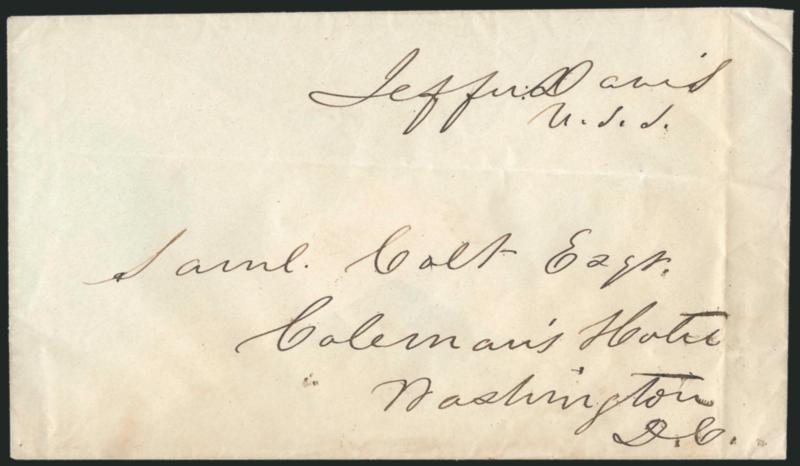 Jeffn. Davis
U.S.S.
Saml. Colt Esqr.
Coleman's Hotel
Washington
D.C.